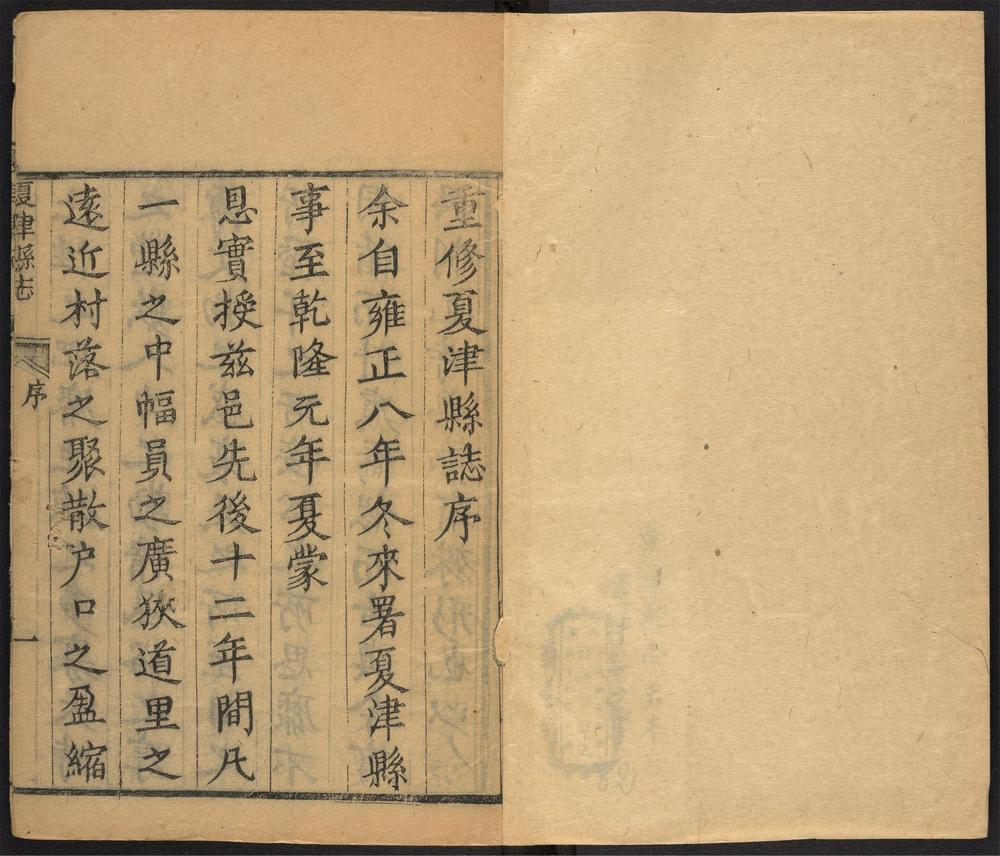 重修夏津縣誌序
余自雍正八年冬來署夏津縣
事至乾隆元年夏蒙
恩實授兹邑先後十二年間凡
一縣之中幅員之廣狹道里之
遠近村落之聚散户口之盈縮
夏津縣志 序 一